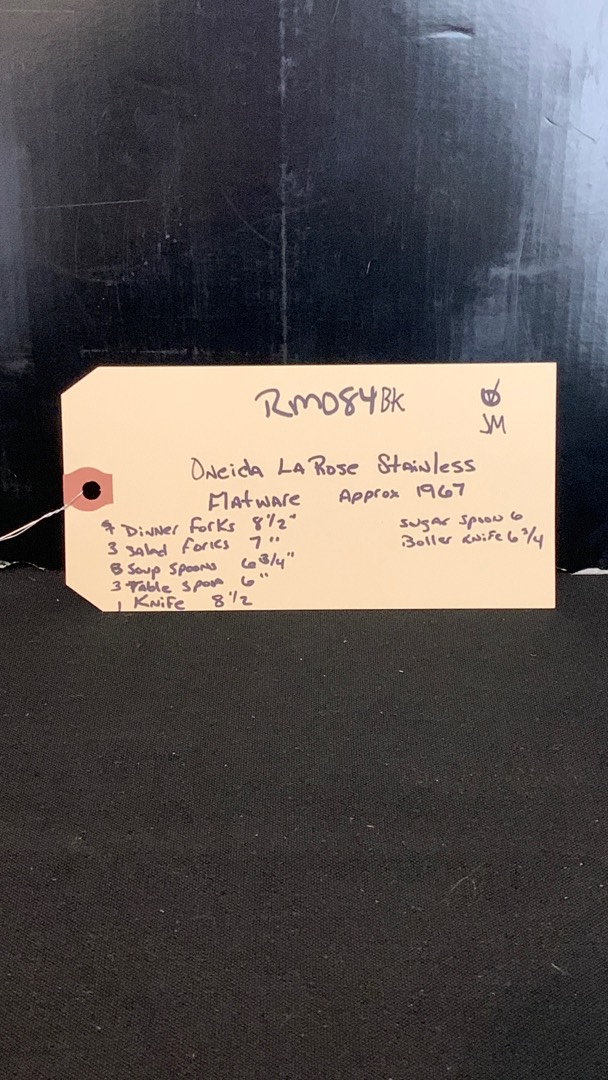 RM084BK
JM
Oneida La Rose Stainless
Flatware Approx 1967
Dinner Forks 8 1/2"
3 Salad Forks 7"
Soup Spoons 6 3/4"
3 Table Spoon 6"
1 Knife 8 1/2
Sugar Spoon 6
Knife 6 3/4